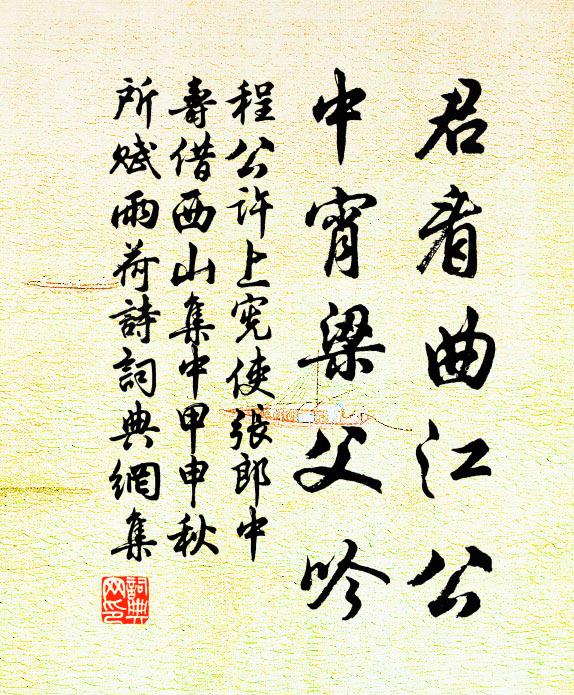 君看曲江公
中宵梁父吟
程公許上宪使張郎中
壽借西山集中甲申秋
所赋雨荷詩詞典網集
詞典網印